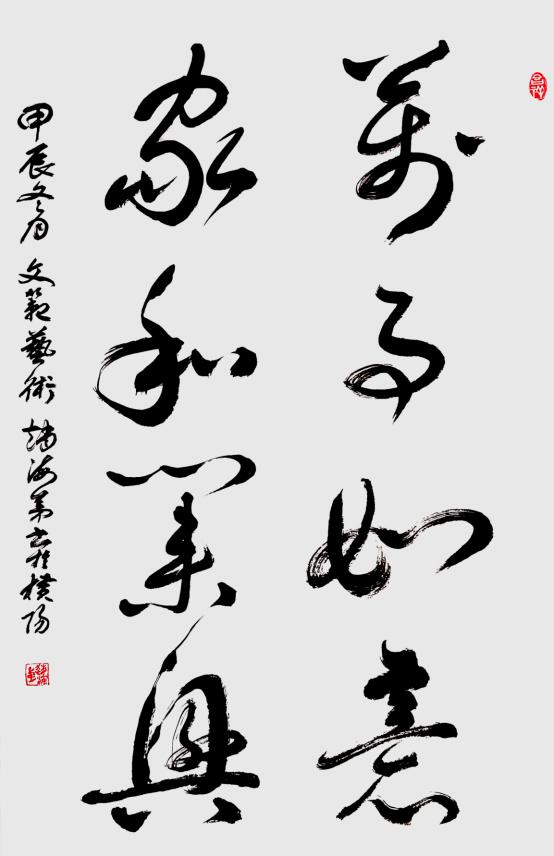 萬事如意
家和業興
甲辰冬月 文範藝術 趙海 書於濮陽